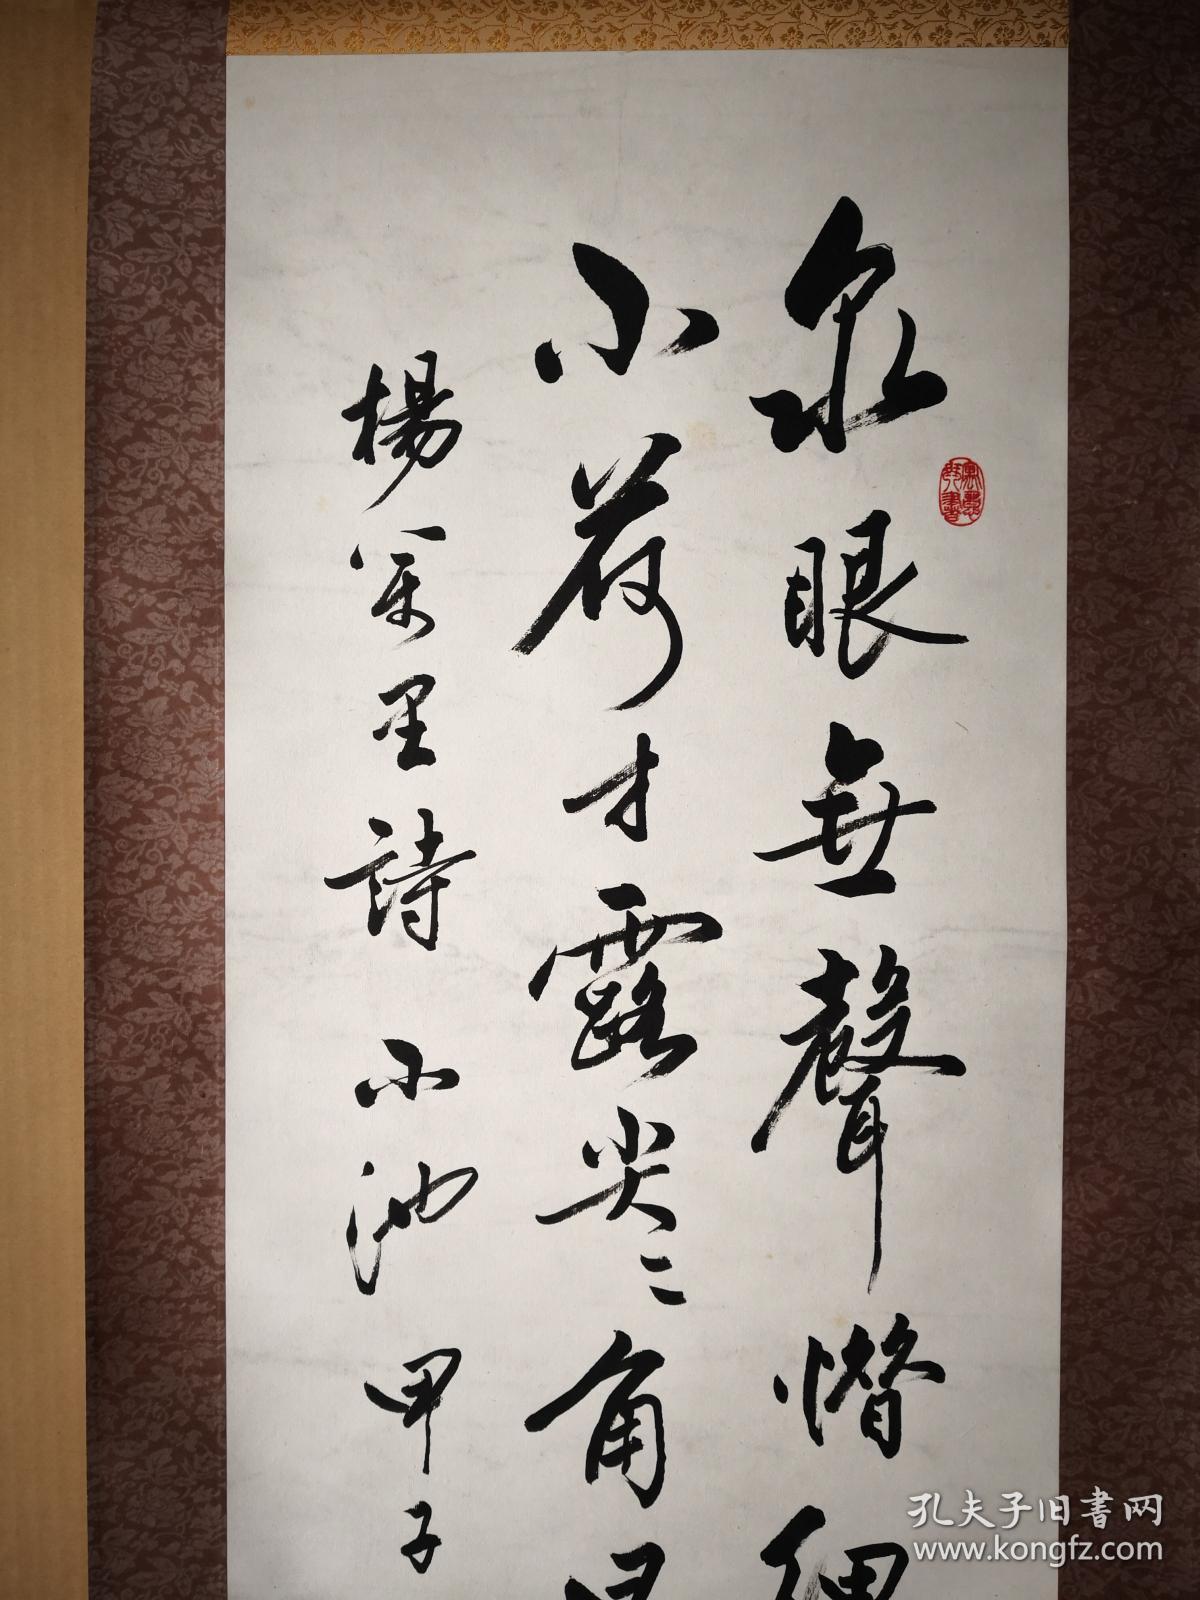 泉眼無聲惜細
小荷才露尖〻角早
楊萬里詩 小池 甲子
孔夫子旧书网
www.kongfz.com